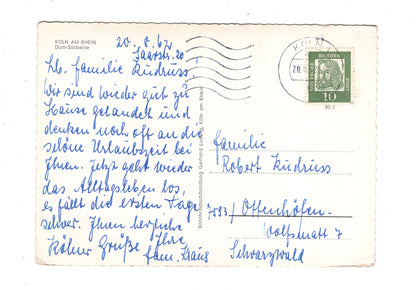 KÖLN AM RHEIN
Dom-Südseite
20. 8. 62
Saarstr. 20
Lb. Familie Rudruss!
Wir sind wieder gut zu
Hause gelandet und
denken noch oft an die
schöne Urlaubszeit bei
Ihnen. Jetzt geht wieder
das Alltagsleben los,
es fällt die ersten Tage
schwer. Ihnen herzliche
Kölner Grüße Ihre
Fam. Klaus
KÖLN
DEUTSCHE BUNDESPOST
10
Familie
Robert Rudruss
7593/ Ottenhöfen
Wolfsmatt 7
Schwarzwald